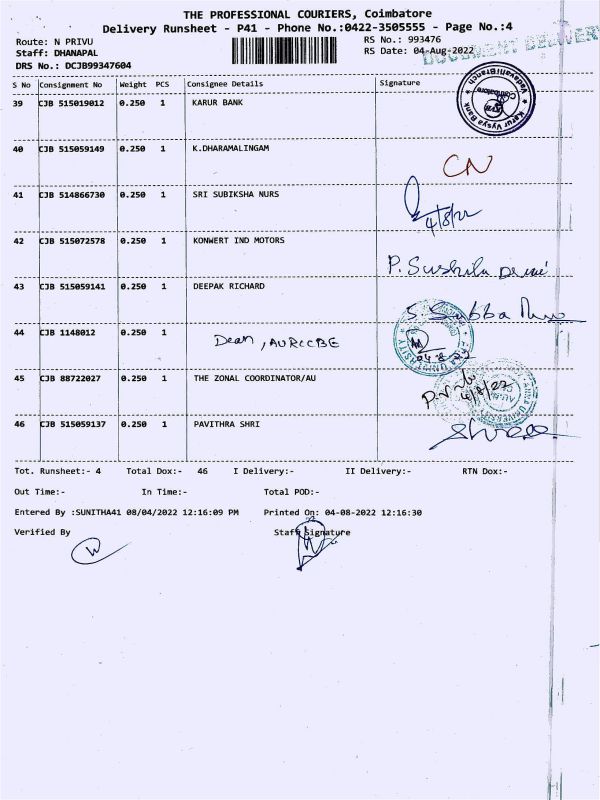 THE PROFESSIONAL COURIERS, Coimbatore
Delivery Runsheet - P41 - Phone No.:0422-3505555 - Page No.:4
Route: N PRIVU RS No.: 993476
Staff: DHANAPAL RS Date: 04-Aug-2022
DRS No.: DCJB99347604
DOCUMENT DELIVERY
S No Consignment No Weight PCS Consignee Details Signature
39 CJB 515019012 0.250 1 KARUR BANK
Karur Vysya Bank Vadavalli Branch Coimbatore
40 CJB 515059149 0.250 1 K.DHARAMALINGAM CN
41 CJB 514866730 0.250 1 SRI SUBIKSHA NURS 4/8/22
42 CJB 515072578 0.250 1 KONWERT IND MOTORS P. Sushila
43 CJB 515059141 0.250 1 DEEPAK RICHARD S. Subba
44 CJB 1148012 0.250 1 Dean, AURCCBE 04-8-22
45 CJB 88722027 0.250 1 THE ZONAL COORDINATOR/AU 4/8/22
46 CJB 515059137 0.250 1 PAVITHRA SHRI
Tot. Runsheet:- 4 Total Dox:- 46 I Delivery:- II Delivery:- RTN Dox:-
Out Time:- In Time:- Total POD:-
Entered By :SUNITHA41 08/04/2022 12:16:09 PM Printed On: 04-08-2022 12:16:30
Verified By Staff Signature